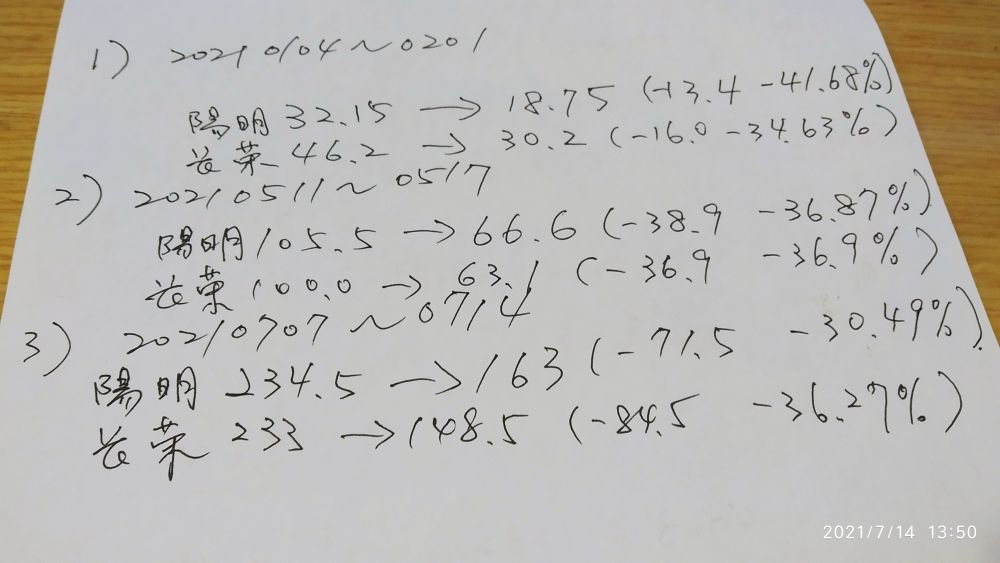 1) 20210104~0201
陽明 32.15 → 18.75 (-13.4 -41.68%)
長榮 46.2 → 30.2 (-16.0 -34.63%)
2) 20210511~0517
陽明 105.5 → 66.6 (-38.9 -36.87%)
長榮 100.0 → 63.1 (-36.9 -36.9%)
3) 20210707~0714
陽明 234.5 → 163 (-71.5 -30.49%)
長榮 233 → 148.5 (-84.5 -36.27%)
2021/7/14 13:50